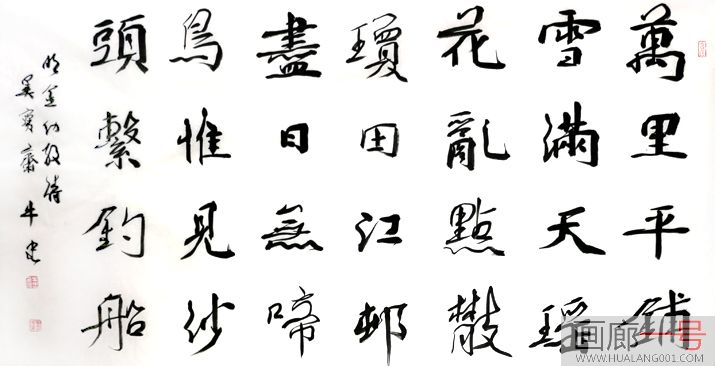 萬里平鋪
雪滿天瑶
花亂點散
瓊田江邨
盡日無啼
鳥惟見沙
頭繫釣船
明金幼孜诗
寶齋 牛
画廊一号
WWW.HUALANG001.COM